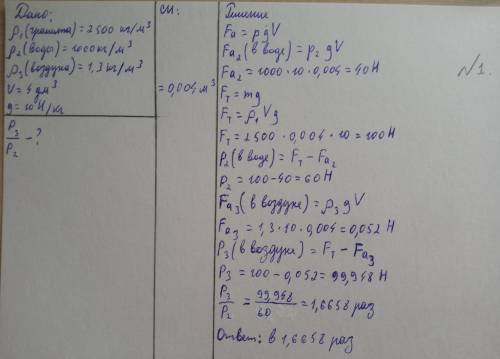 Дано:
ρ1 (гранита) = 2500 кг/м³
ρ2 (воды) = 1000 кг/м³
ρ3 (воздуха) = 1,3 кг/м³
V = 4 дм³
g = 10 Н/кг
P3/P2 - ?
СИ:
= 0,004 м³
Решение
Fa = ρgV
Fa2 (в воде) = ρ2 gV
Fa2 = 1000 · 10 · 0,004 = 40 Н
Fт = mg
Fт = ρ1 Vg
Fт = 2500 · 0,004 · 10 = 100 Н
P2 (в воде) = Fт - Fa2
P2 = 100 - 40 = 60 Н
Fa3 (в воздухе) = ρ3 gV
Fa3 = 1,3 · 10 · 0,004 = 0,052 Н
P3 (в воздухе) = Fт - Fa3
P3 = 100 - 0,052 = 99,948 Н
P3/P2 = 99,948/60 = 1,6658 раз
Ответ: в 1,6658 раз
№1.